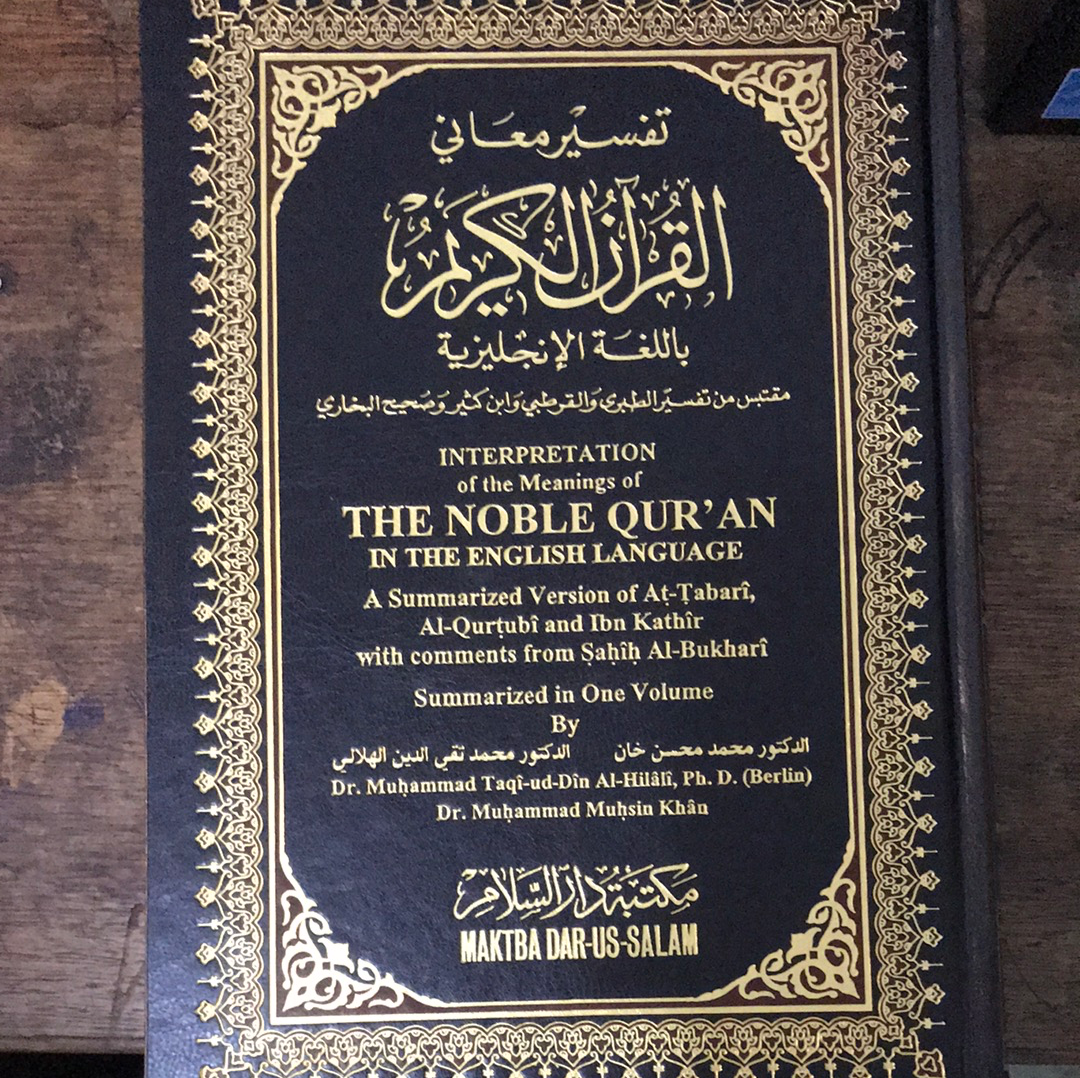 تفسير معاني
القرآن الكريم
باللغة الإنجليزية
مقتبس من تفسير الطبري والقرطبي وابن كثير وصحيح البخاري
INTERPRETATION
of the Meanings of
THE NOBLE QUR'AN
IN THE ENGLISH LANGUAGE
A Summarized Version of Aṭ-Ṭabarî,
Al-Qurṭubî and Ibn Kathîr
with comments from Ṣaḥîḥ Al-Bukharî
Summarized in One Volume
By
الدكتور محمد محسن خان الدكتور محمد تقي الدين الهلالي
Dr. Muḥammad Taqî-ud-Dîn Al-Hilâlî, Ph. D. (Berlin)
Dr. Muḥammad Muḥsin Khân
مكتبة دار السلام
MAKTBA DAR-US-SALAM